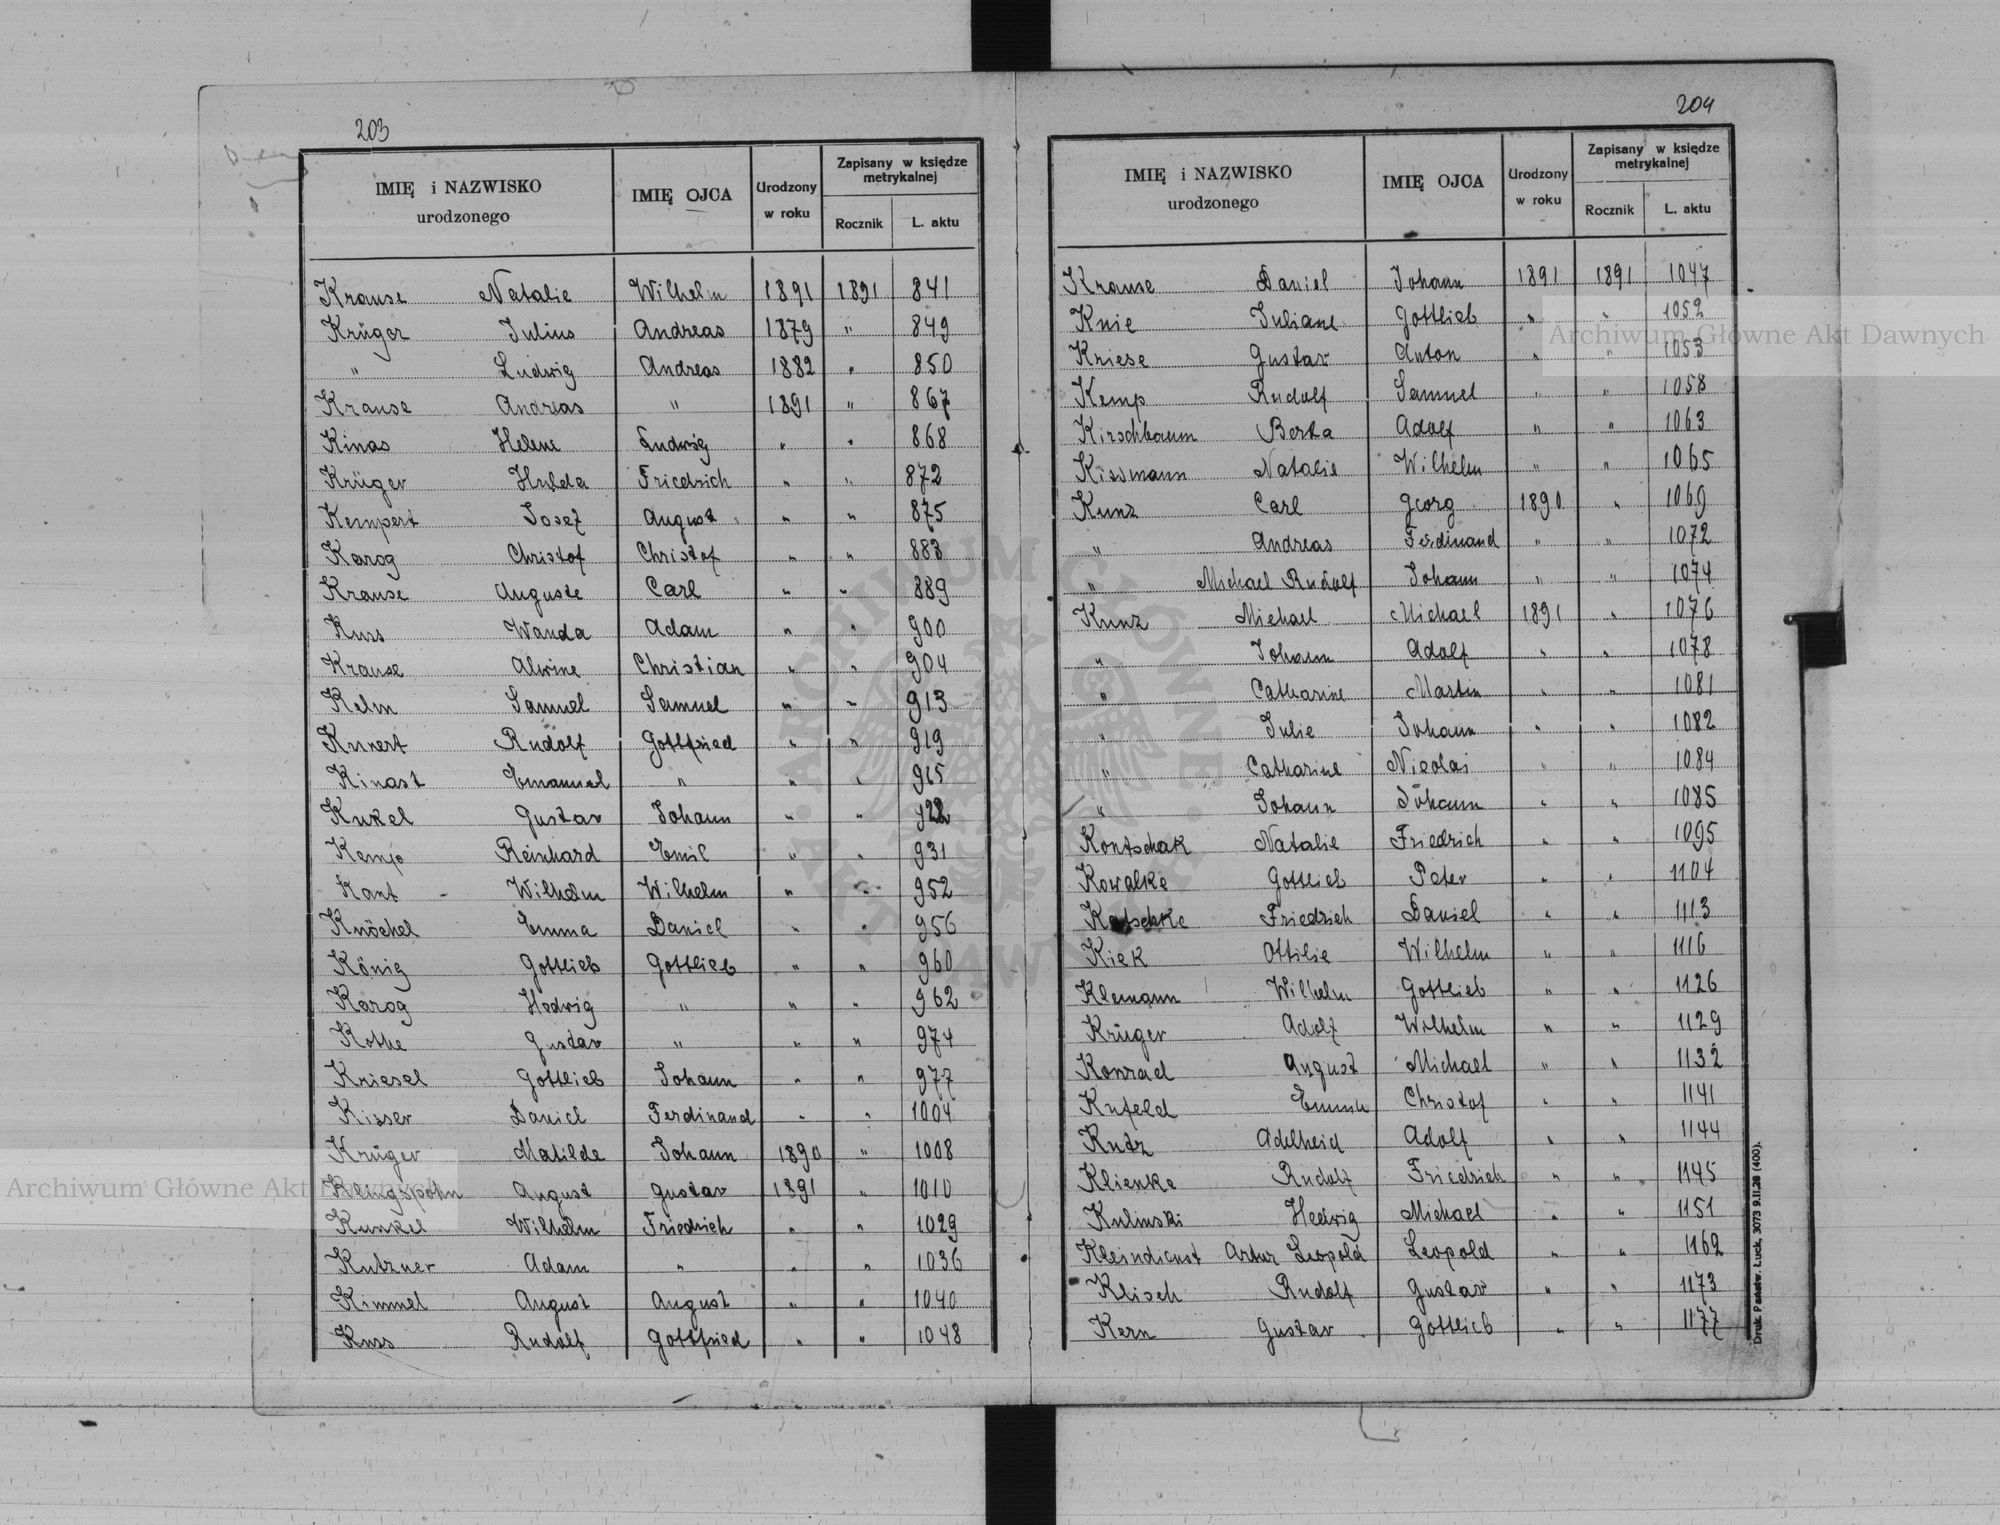 203
IMIĘ i NAZWISKO urodzonego IMIĘ OJCA Urodzony w roku Zapisany w księdze metrykalnej
Rocznik L. aktu
Krause Natalie Wilhelm 1891 1891 841
Krüger Julius Andreas 1879 " 849
" Ludwig Andreas 1882 " 850
Krause Andreas " 1891 " 867
Kinas Helene Ludwig " " 868
Krüger Hulda Friedrich " " 872
Kempert Josef August " " 875
Karog Christof Christof " " 883
Krause Auguste Carl " " 889
Kuss Wanda Adam " " 900
Krause Alwine Christian " " 904
Kelm Samuel Samuel " " 913
Kunert Rudolf Gottfried " " 919
Kinast Emanuel " " " 965
Kukel Gustav Johann " "
Kemp Reinhard Emil " " 931
Kant Wilhelm Wilhelm " " 952
Knöchel Emma Daniel " " 956
König Gottlieb Gottlieb " " 960
Karog Hedwig " " " 962
Kothe Gustav " " " 974
Kriesel Gottlieb Johann " " 977
Kisser Daniel Ferdinand " " 1004
Krüger Matilde Johann 1890 " 1008
Klingspohn August Gustav 1891 " 1010
Kunkel Wilhelm Friedrich " " 1029
Kutzner Adam " " " 1036
Kimmel August August " " 1040
Kuss Rudolf Gottfried " " 1048
204
IMIĘ i NAZWISKO urodzonego IMIĘ OJCA Urodzony w roku Zapisany w księdze metrykalnej
Rocznik L. aktu
Krause Daniel Johann 1891 1891 1047
Knie Juliane Gottlieb " " 1052
Kriese Gustav Anton " " 1053
Kemp Rudolf Samuel " " 1058
Kirschbaum Berta Adolf " " 1063
Kissmann Natalie Wilhelm " " 1065
Kunz Carl Georg 1890 " 1069
" Andreas Ferdinand " " 1072
" Michael Rudolf Johann " " 1074
Kunz Michael Michael 1891 " 1076
" Johann Adolf " " 1078
" Catharine Martin " " 1081
" Julie Johann " " 1082
" Catharine Nicolai " " 1084
" Johann Johann " " 1085
Kontschak Natalie Friedrich " " 1095
Kowalke Gottlieb Peter " " 1104
Friedrich Daniel " " 1113
Kiek Ottilie Wilhelm " " 1116
Klemann Wilhelm Gottlieb " " 1126
Krüger Adolf Wilhelm " " 1129
Konrad August Michael " " 1132
Kufeld Emma Christof " " 1141
Kutz Adelheid Adolf " " 1144
Klienke Rudolf Friedrich " " 1145
Kulinski Hedwig Michael " " 1151
Kleindienst Artur Leopold Leopold " " 1162
Klisch Rudolf Gustav " " 1173
Kern Gustav Gottlieb " " 1177
Druk. Państw. Łuck, 3073 9.II.28 (400).
Archiwum Główne Akt Dawnych
Archiwum Główne Akt Dawnych
ARCHIWUM GŁÓWNE AKT DAWNYCH